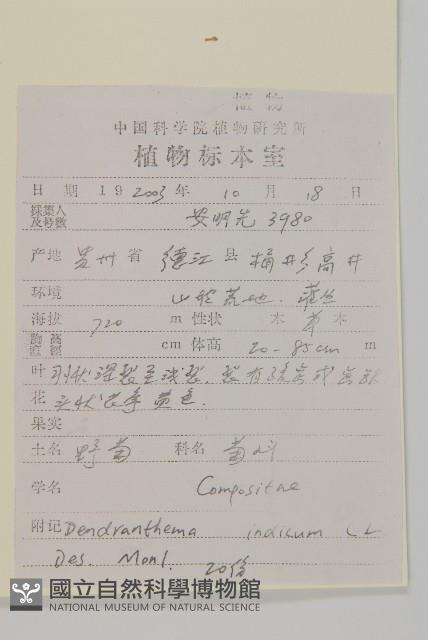 植物
中国科学院植物研究所
植物标本室
日期 19 2003 年 10 月 18 日
採集人及号數 安明先 3980
产地 贵州 省 德江 县 桶井乡高井
环境 山坡荒地. 灌丛
海拔 720 m 性状 木 草 木
胸高直徑 cm 体高 20-85cm m
叶 羽状深裂至浅裂.
花 头状花序黄色.
果实
土名 野菊 科名 菊科
学名 Compositae
附记 Dendranthema indicum (L
Des. Moul. 20份
國立自然科學博物館
NATIONAL MUSEUM OF NATURAL SCIENCE